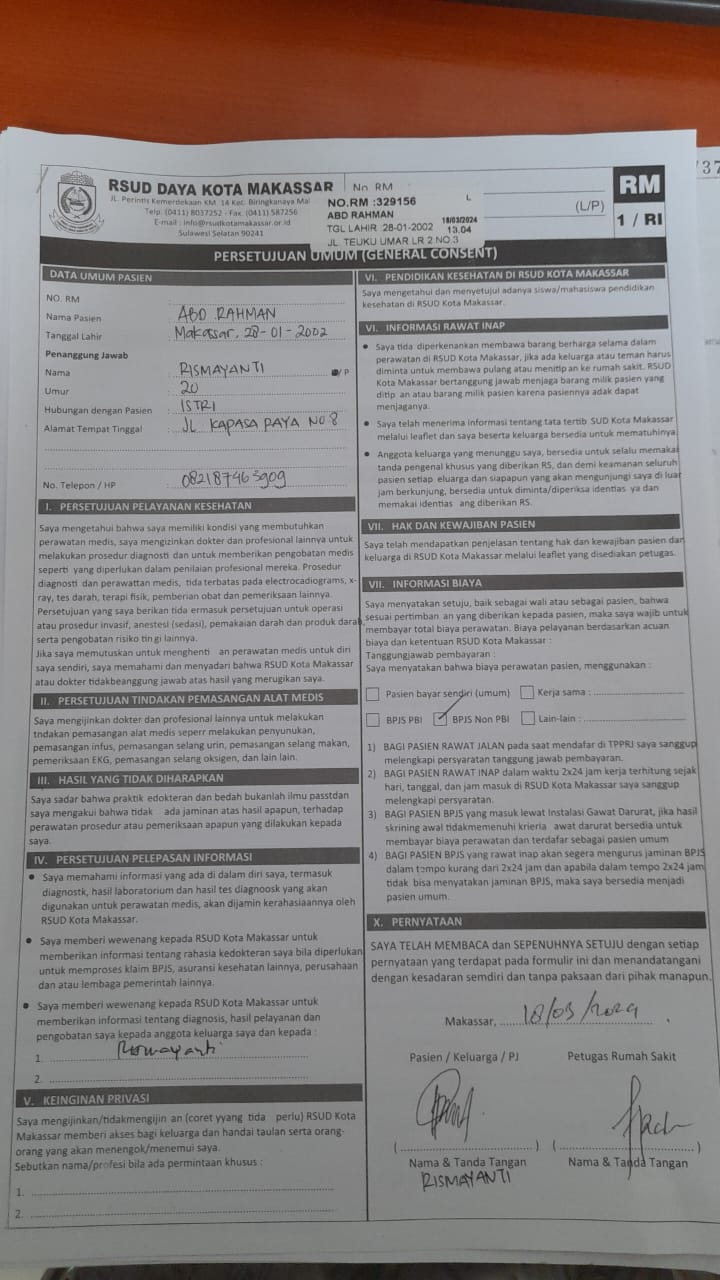 RSUD DAYA KOTA MAKASSAR
JL. Perintis Kemerdekaan KM. 14 Kec. Biringkanaya Mal
Telp. (0411) 8037252 - Fax. (0411) 587256
E-mail : info@rsudkotamakassar.or.id
Sulawesi Selatan 90241
No. RM
NO.RM :329156
L
ABD RAHMAN
18/03/2024
TGL LAHIR 28-01-2002
13.04
JL. TEUKU UMAR LR 2 NO.3
(L/P)
RM
1 / RI
37
PERSETUJUAN UMUM (GENERAL CONSENT)
DATA UMUM PASIEN
NO. RM :
Nama Pasien : ABD RAHMAN
Tanggal Lahir : Makassar, 28-01-2002
Penanggung Jawab
Nama : RISMAYANTI /P
Umur : 20
Hubungan dengan Pasien : ISTRI
Alamat Tempat Tinggal : JL KAPASA RAYA NO 8
No. Telepon / HP : 082187463909
I. PERSETUJUAN PELAYANAN KESEHATAN
Saya mengetahui bahwa saya memiliki kondisi yang membutuhkan
perawatan medis, saya mengizinkan dokter dan profesional lainnya untuk
melakukan prosedur diagnosti dan untuk memberikan pengobatan medis
seperti yang diperlukan dalam penilaian profesional mereka. Prosedur
diagnosti dan perawattan medis, tida terbatas pada electrocadiograms, x-
ray, tes darah, terapi fisik, pemberian obat dan pemeriksaan lainnya.
Persetujuan yang saya berikan tida ermasuk persetujuan untuk operasi
atau prosedur invasif, anestesi (sedasi), pemakaian darah dan produk darah,
serta pengobatan risiko tin gi lainnya.
Jika saya memutuskan untuk menghenti an perawatan medis untuk diri
saya sendiri, saya memahami dan menyadari bahwa RSUD Kota Makassar
atau dokter tidakbeanggung jawab atas hasil yang merugikan saya.
II. PERSETUJUAN TINDAKAN PEMASANGAN ALAT MEDIS
Saya mengijinkan dokter dan profesional lainnya untuk melakukan
tndakan pemasangan alat medis seperr melakukan penyunukan,
pemasangan infus, pemasangan selang urin, pemasangan selang makan,
pemeriksaan EKG, pemasangan selang oksigen, dan lain lain.
III. HASIL YANG TIDAK DIHARAPKAN
Saya sadar bahwa praktik edokteran dan bedah bukanlah ilmu passtdan
saya mengakui bahwa tidak ada jaminan atas hasil apapun, terhadap
perawatan prosedur atau pemeriksaan apapun yang dilakukan kepada
saya.
IV. PERSETUJUAN PELEPASAN INFORMASI
• Saya memahami informasi yang ada di dalam diri saya, termasuk
diagnostk, hasil laboratorium dan hasil tes diagnoosk yang akan
digunakan untuk perawatan medis, akan dijamin kerahasiaannya oleh
RSUD Kota Makassar.
• Saya memberi wewenang kepada RSUD Kota Makassar untuk
memberikan informasi tentang rahasia kedokteran saya bila diperlukan
untuk memproses klaim BPJS, asuransi kesehatan lainnya, perusahaan
dan atau lembaga pemerintah lainnya.
• Saya memberi wewenang kepada RSUD Kota Makassar untuk
memberikan informasi tentang diagnosis, hasil pelayanan dan
pengobatan saya kepada anggota keluarga saya dan kepada :
1. Rismayanti
2.
V. KEINGINAN PRIVASI
Saya mengijinkan/tidakmengijin an (coret yyang tida perlu) RSUD Kota
Makassar memberi akses bagi keluarga dan handai taulan serta orang-
orang yang akan menengok/menemui saya.
Sebutkan nama/profesi bila ada permintaan khusus :
1.
2.
VI. PENDIDIKAN KESEHATAN DI RSUD KOTA MAKASSAR
Saya mengetahui dan menyetujui adanya siswa/mahasiswa pendidikan
kesehatan di RSUD Kota Makassar.
VI. INFORMASI RAWAT INAP
• Saya tida diperkenankan membawa barang berharga selama dalam
perawatan di RSUD Kota Makassar, jika ada keluarga atau teman harus
diminta untuk membawa pulang atau menitip an ke rumah sakit. RSUD
Kota Makassar bertanggung jawab menjaga barang milik pasien yang
ditip an atau barang milik pasien karena pasiennya adak dapat
menjaganya.
• Saya telah menerima informasi tentang tata tertib SUD Kota Makassar
melalui leaflet dan saya beserta keluarga bersedia untuk mematuhinya.
• Anggota keluarga yang menunggu saya, bersedia untuk selalu memakai
tanda pengenal khusus yang diberikan RS, dan demi keamanan seluruh
pasien setiap eluarga dan siapapun yang akan mengunjungi saya di luar
jam berkunjung, bersedia untuk diminta/diperiksa identias ya dan
memakai identias ang diberikan RS.
VII. HAK DAN KEWAJIBAN PASIEN
Saya telah mendapatkan penjelasan tentang hak dan kewajiban pasien dan
keluarga di RSUD Kota Makassar melalui leaflet yang disediakan petugas.
VII. INFORMASI BIAYA
Saya menyatakan setuju, baik sebagai wali atau sebagai pasien, bahwa
sesuai pertimban an yang diberikan kepada pasien, maka saya wajib untuk
membayar total biaya perawatan. Biaya pelayanan berdasarkan acuan
biaya dan ketentuan RSUD Kota Makassar :
Tanggungjawab pembayaran :
Saya menyatakan bahwa biaya perawatan pasien, menggunakan :
Pasien bayar sendiri (umum) Kerja sama :
BPJS PBI BPJS Non PBI Lain-lain :
1) BAGI PASIEN RAWAT JALAN pada saat mendafar di TPPRJ saya sanggup
melengkapi persyaratan tanggung jawab pembayaran.
2) BAGI PASIEN RAWAT INAP dalam waktu 2x24 jam kerja terhitung sejak
hari, tanggal, dan jam masuk di RSUD Kota Makassar saya sanggup
melengkapi persyaratan.
3) BAGI PASIEN BPJS yang masuk lewat Instalasi Gawat Darurat, jika hasil
skrining awal tidakmemenuhi krieria awat darurat bersedia untuk
membayar biaya perawatan dan terdafar sebagai pasien umum
4) BAGI PASIEN BPJS yang rawat inap akan segera mengurus jaminan BPJS
dalam tempo kurang dari 2x24 jam dan apabila dalam tempo 2x24 jam
tidak bisa menyatakan jaminan BPJS, maka saya bersedia menjadi
pasien umum.
X. PERNYATAAN
SAYA TELAH MEMBACA dan SEPENUHNYA SETUJU dengan setiap
pernyataan yang terdapat pada formulir ini dan menandatangani
dengan kesadaran semdiri dan tanpa paksaan dari pihak manapun.
Makassar, 18/03/2024
Pasien / Keluarga / PJ Petugas Rumah Sakit
( ) ( )
Nama & Tanda Tangan Nama & Tanda Tangan
RISMAYANTI